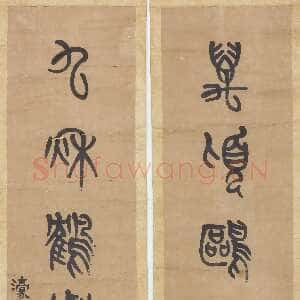 萬頃鷗
九秋鶴
濠
Shufawang.CN